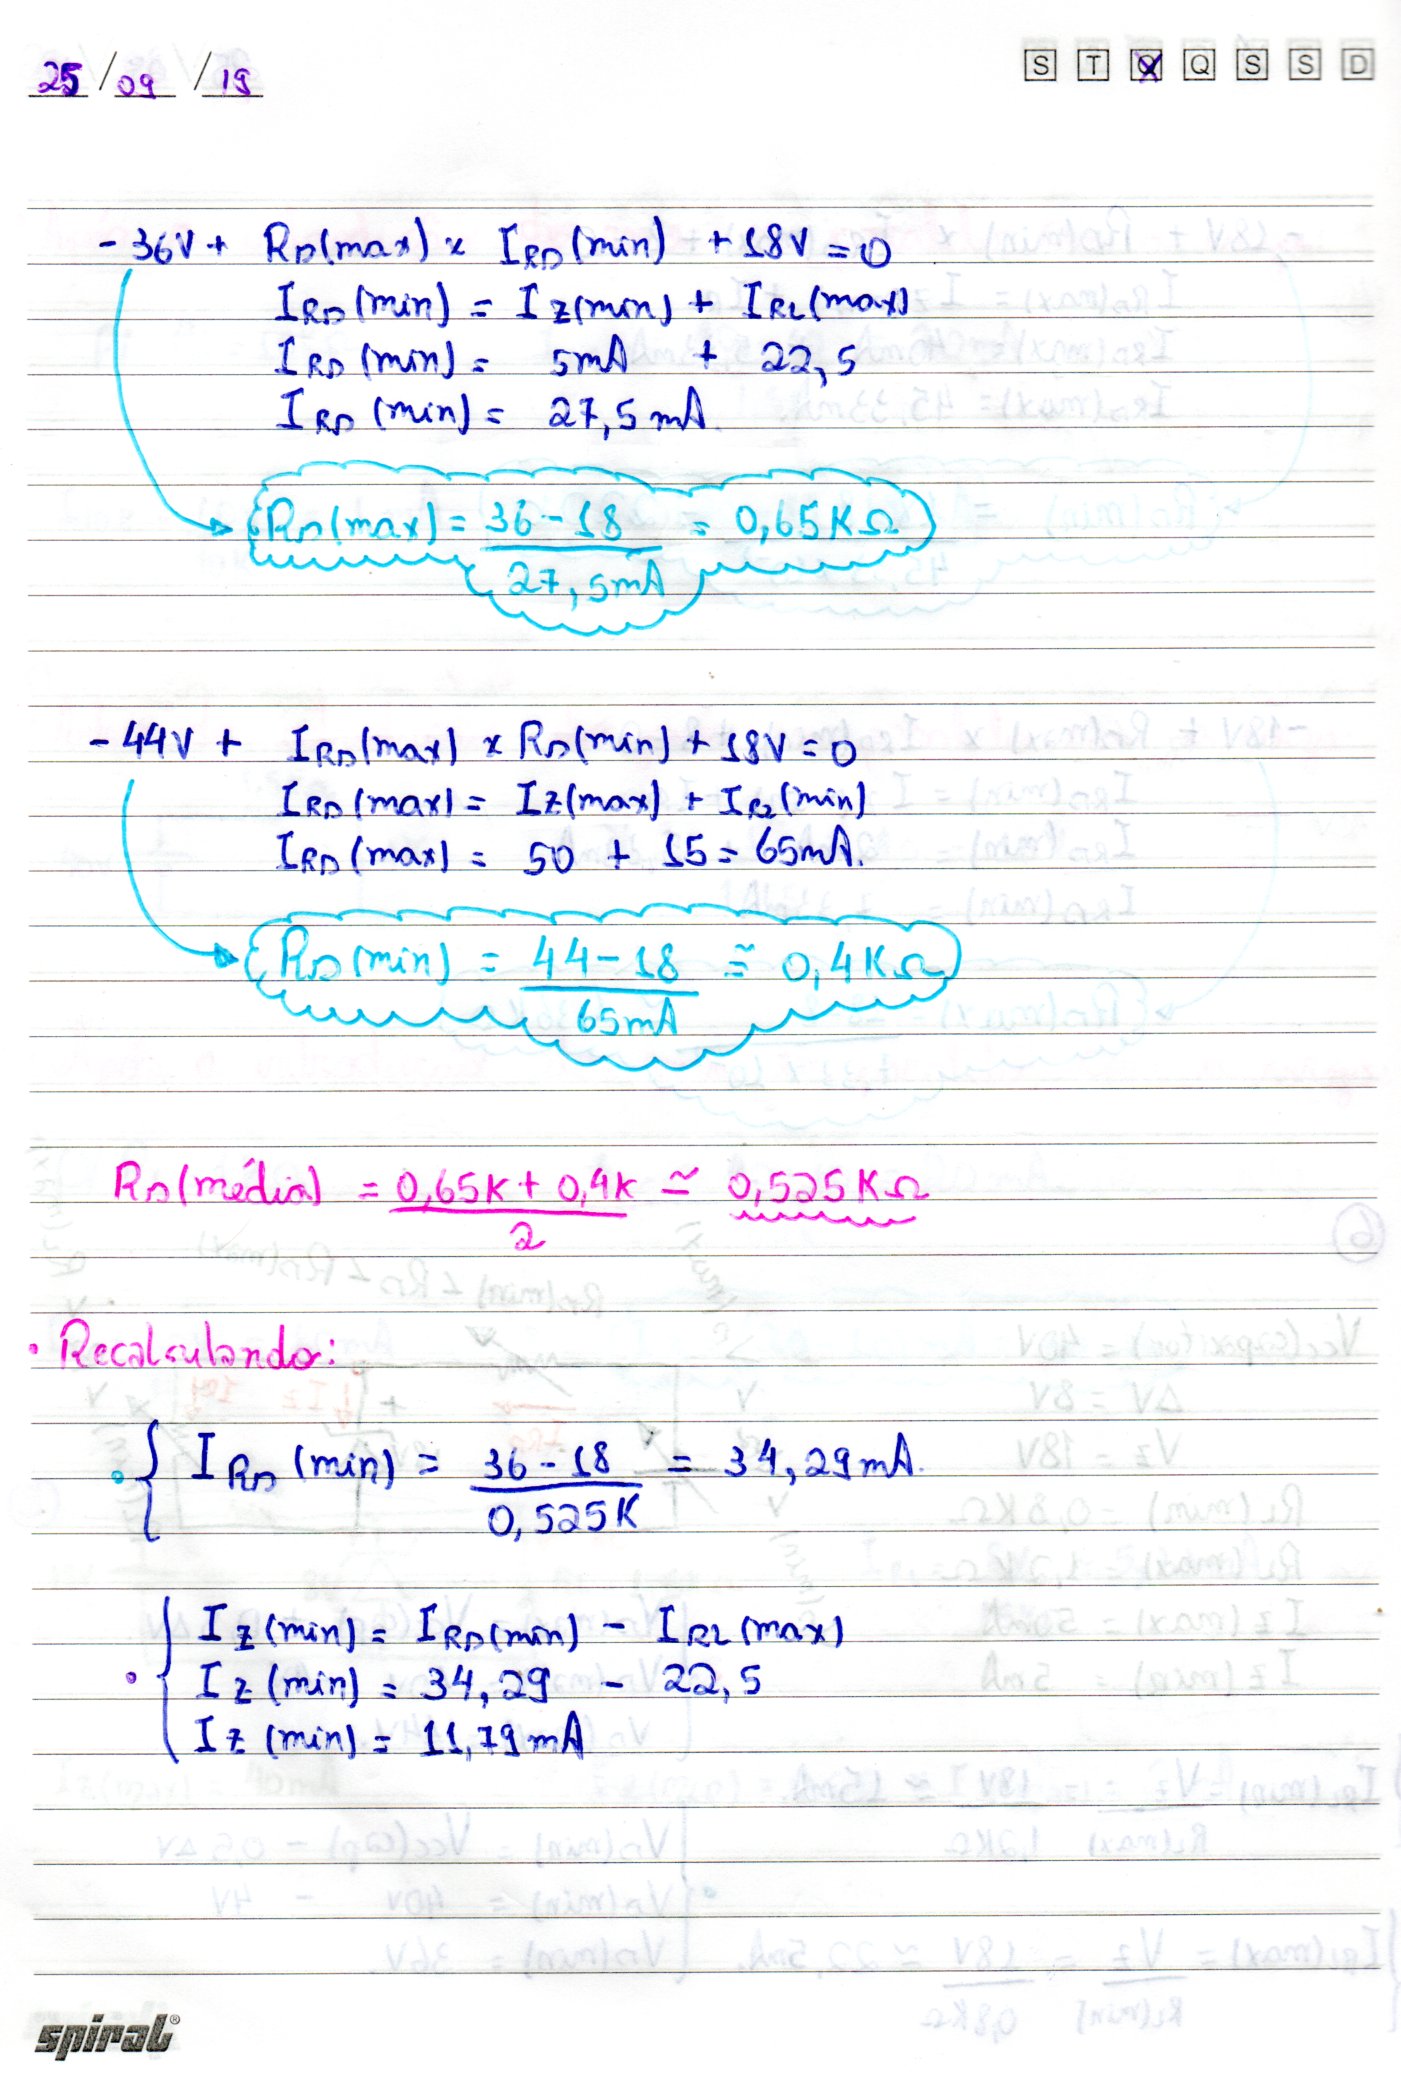 25/09/19 S T Q Q S S D
-36V + RD(max) x IRD(min) + 18V = 0
IRD(min) = IZ(min) + IRL(max)
IRD(min) = 5mA + 22,5
IRD(min) = 27,5mA.
RD(max) = 36-18 = 0,65KΩ
27,5mA
-44V + IRD(max) x RD(min) + 18V = 0
IRD(max) = IZ(max) + IRL(min)
IRD(max) = 50 + 15 = 65mA.
RD(min) = 44-18 ≅ 0,4KΩ
65mA
RD(média) = 0,65K + 0,4K ≃ 0,525KΩ
2
• Recalculando:
• IRD(min) = 36-18 = 34,29mA.
0,525K
IZ(min) = IRD(min) - IRL(max)
• IZ(min) = 34,29 - 22,5
IZ(min) = 11,79mA
spiral®